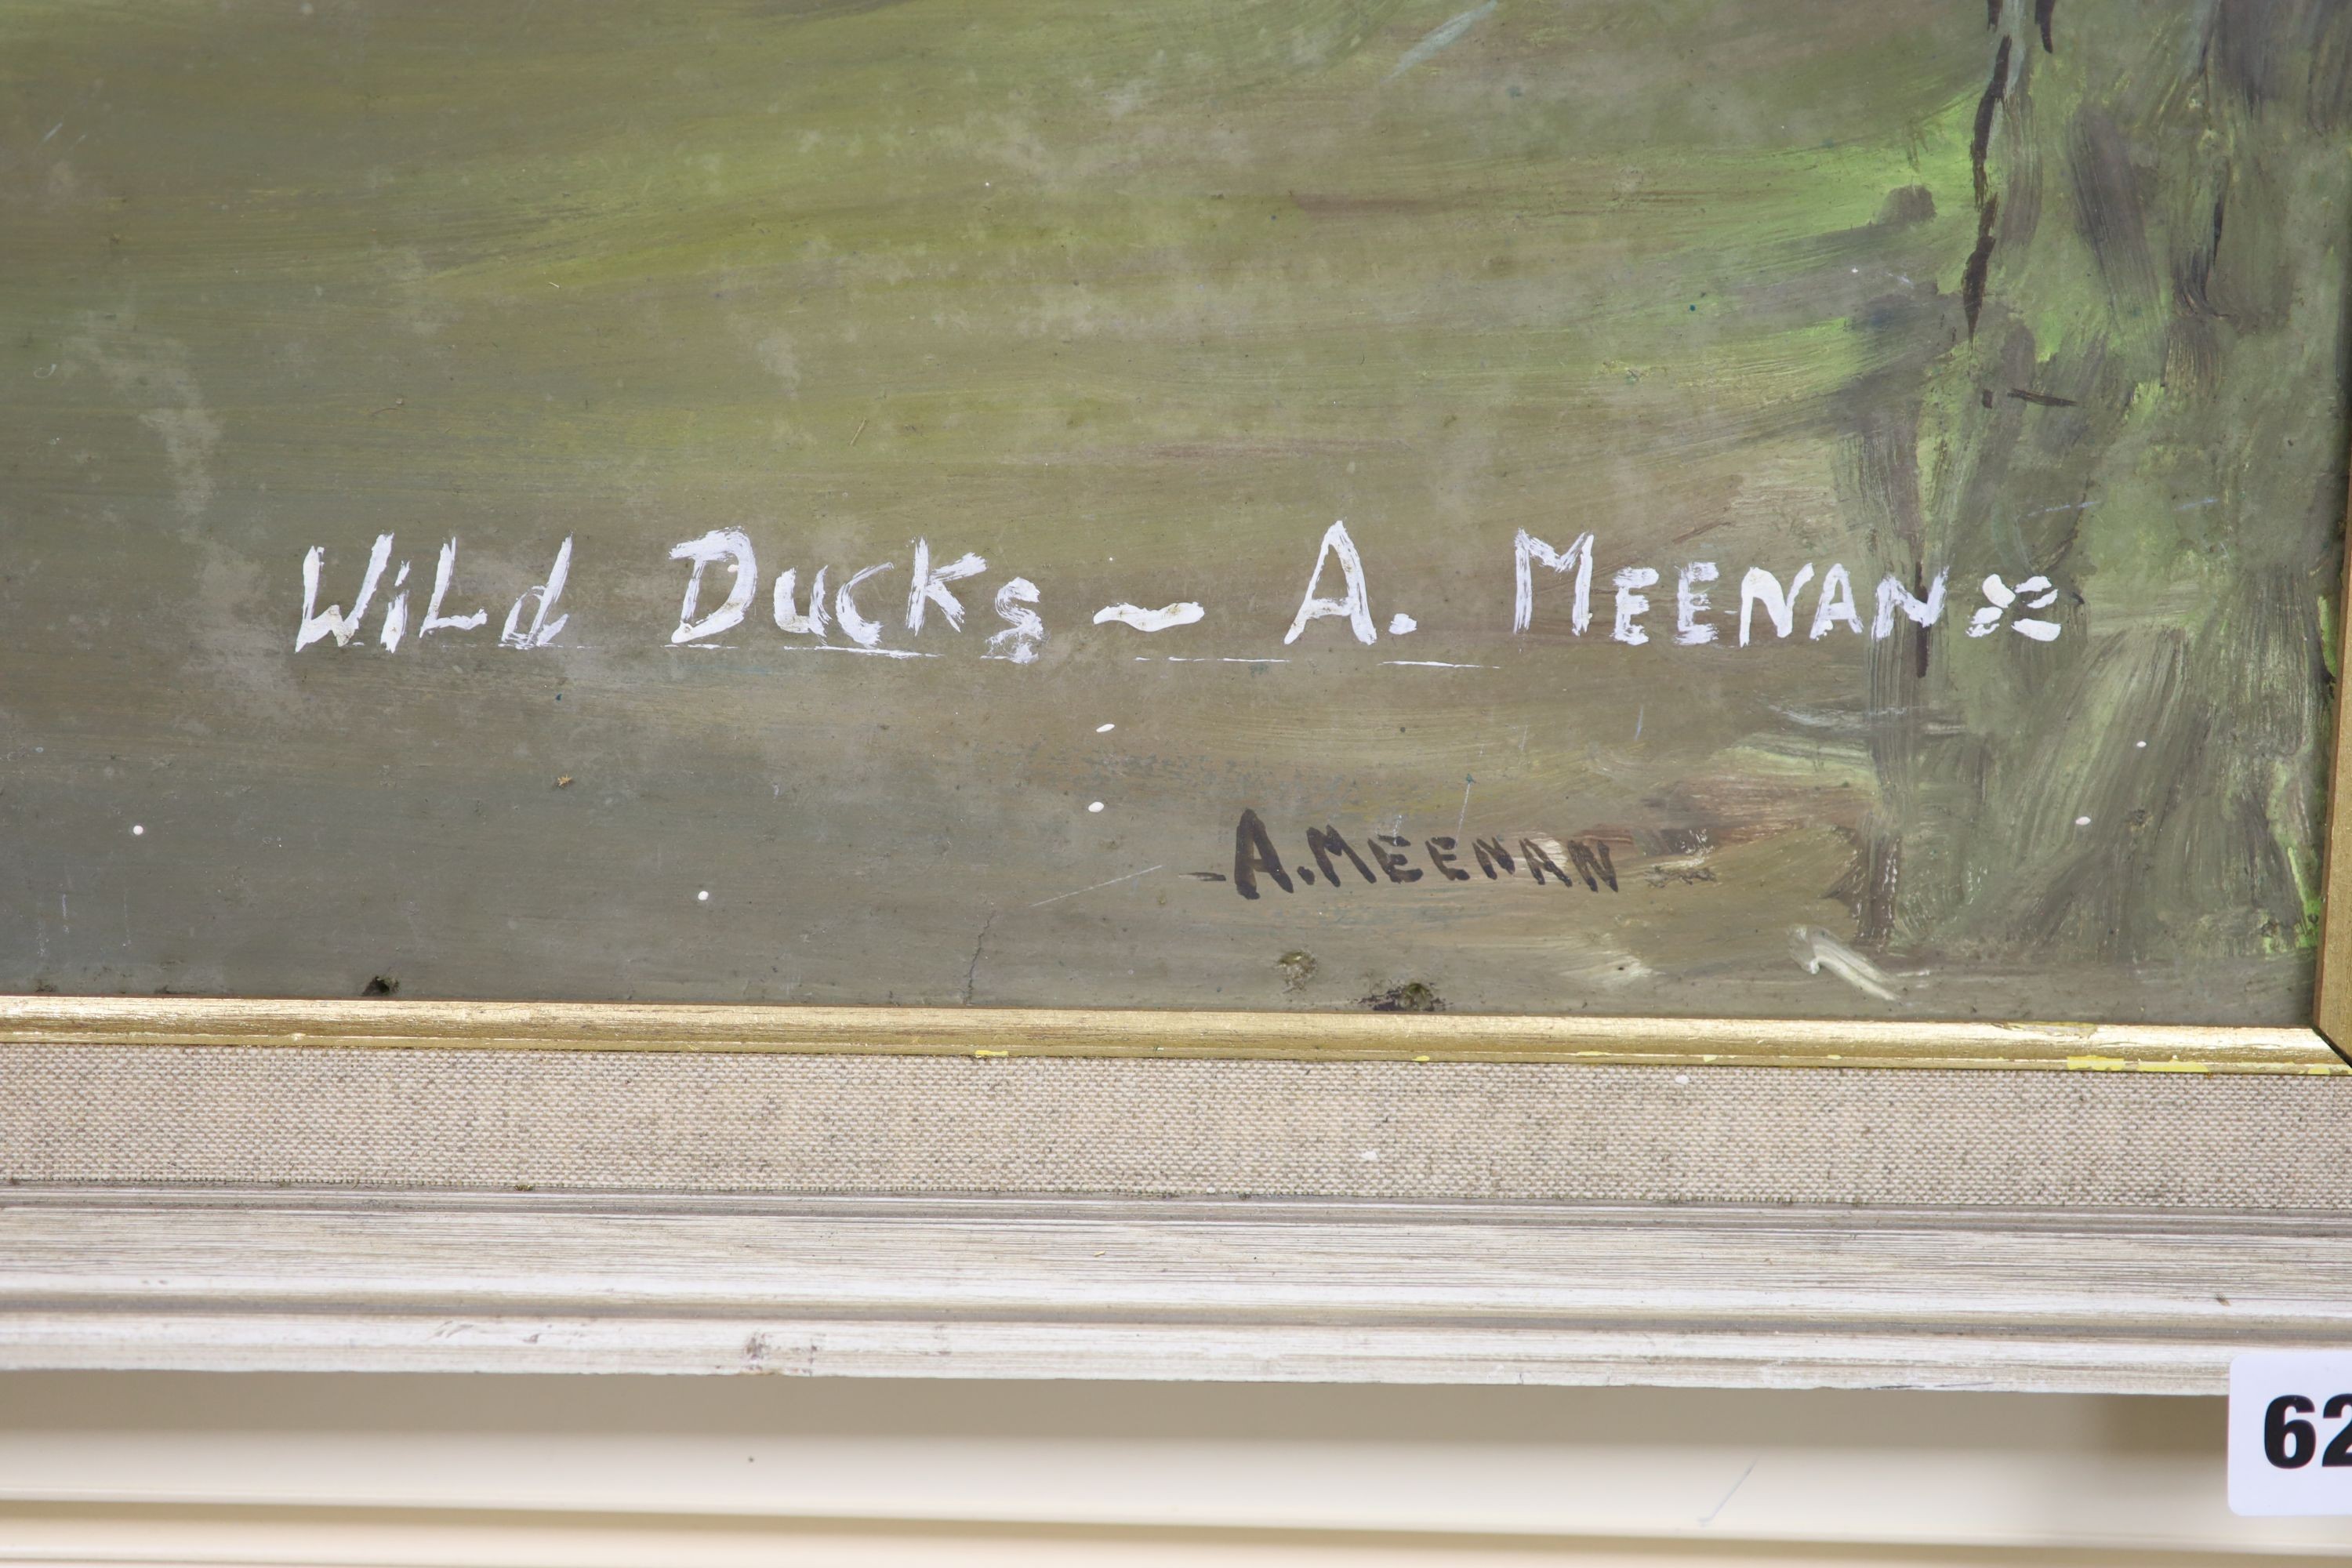 WiLd DucKs ~ A. MEENAN
A. MEENAN
62